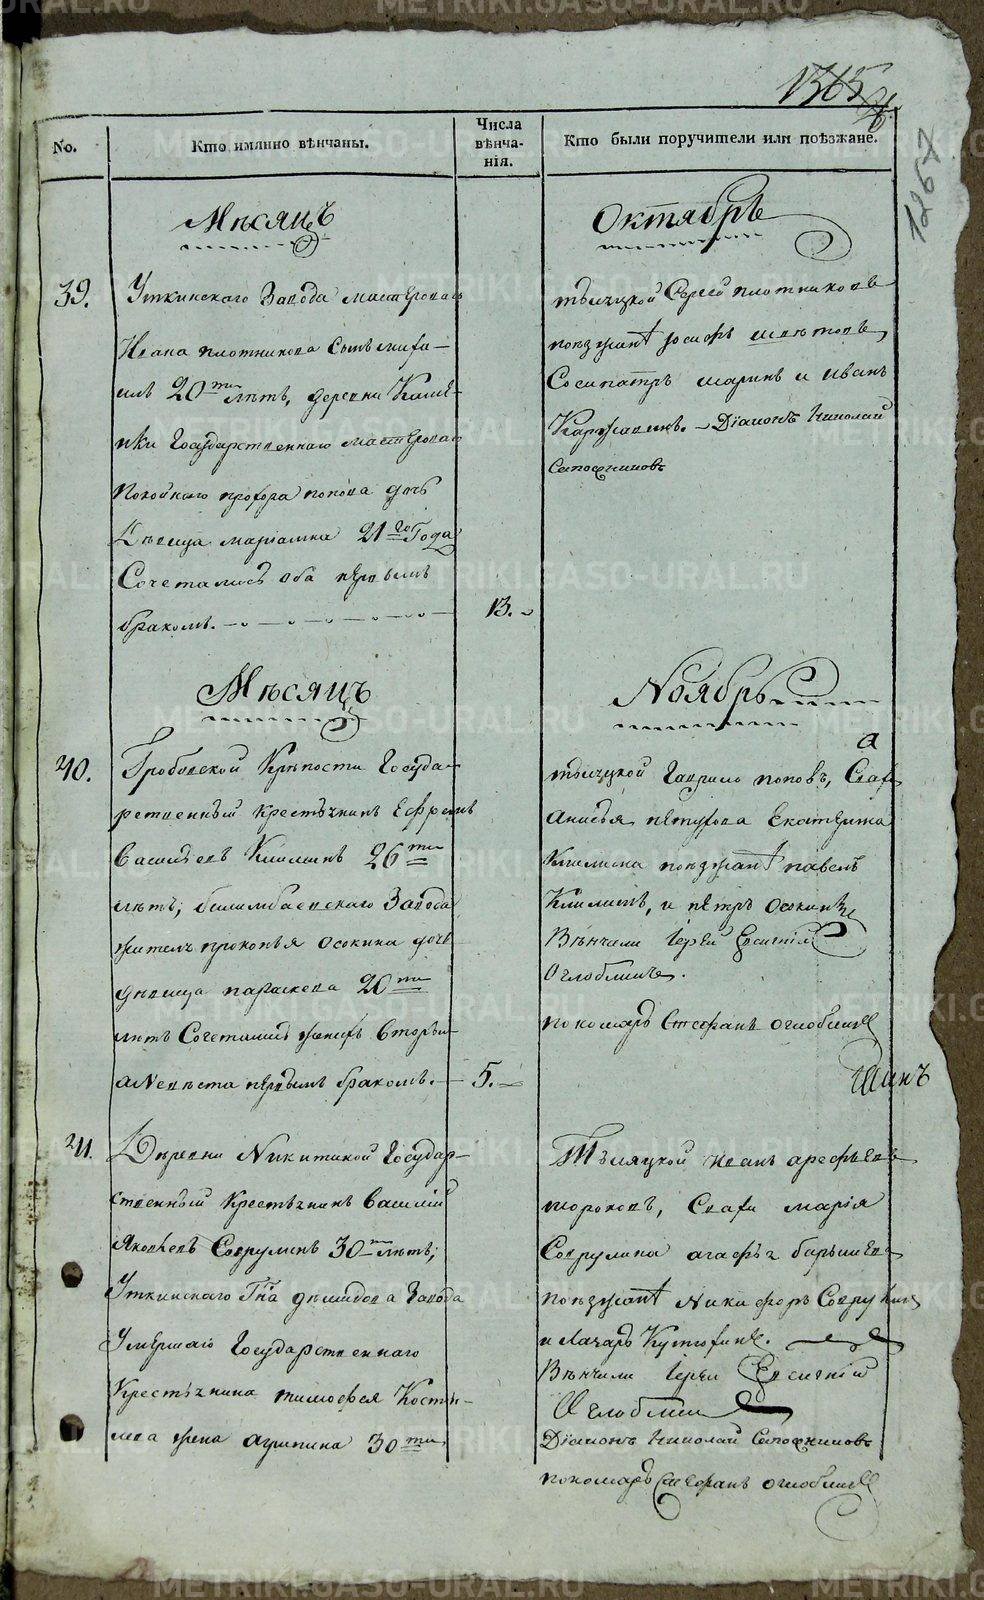 1365
1267
No.
Кто имянно вѣнчаны.
Числа вѣнчанія.
Кто были поручители или поѣзжане.
Мѣсяцъ
Октябрь
39.
Уткинскаго Завода мастероваго
Ивана плотникова сынъ
20ти лѣтъ, деревни
Государственнаго мастероваго
покойнаго попова дочь
Дѣвица маріамна 21го Года
Сочетались оба первымъ
бракомъ.
13.
тысяцкой Сергей плотниковъ
поезжанѣ
Сосипатръ шаринъ и иванъ
Діаконъ Николай
Сапожниковъ
Мѣсяцъ
Ноябрь
40.
Гробовской Крѣпости Государ-
ственный крестьянинъ Ефремъ
Васильевъ Климинъ 26ти
лѣтъ, билимбаевскаго Завода
жителя прокопья осокина дочь
дѣвица параскева 20ти
лѣтъ Сочетались женихъ вторы-
а Невѣста первымъ бракомъ.
5.
тысяцкой Гаврило поповъ, Сваха
Анисья петухова Екатерина
Климина поезжанѣ павелъ
Климинъ, и петръ осокинъ
Вѣнчали Іерей Евсигній
Оглоблинъ.
пономарь Стефанъ оглоблинъ
41.
Деревни Никитиной Государ-
ственный Крестьянинъ Василій
Яковлевъ 30ти лѣтъ;
Уткинскаго Гна демидова Завода
Умершаго Государственнаго
Крестьянина тимофея Косты-
лева жена агрипина 30ти
Тысяцкой иванъ арефьевъ
Свахи марія
агафья
поезжанѣ Никифоръ
и Лазарь
Вѣнчали Іерей Евсигній
Оглоблинъ
Діаконъ Николай Сапожниковъ
пономарь Стефанъ оглоблинъ
METRIKI.GASO-URAL.RU